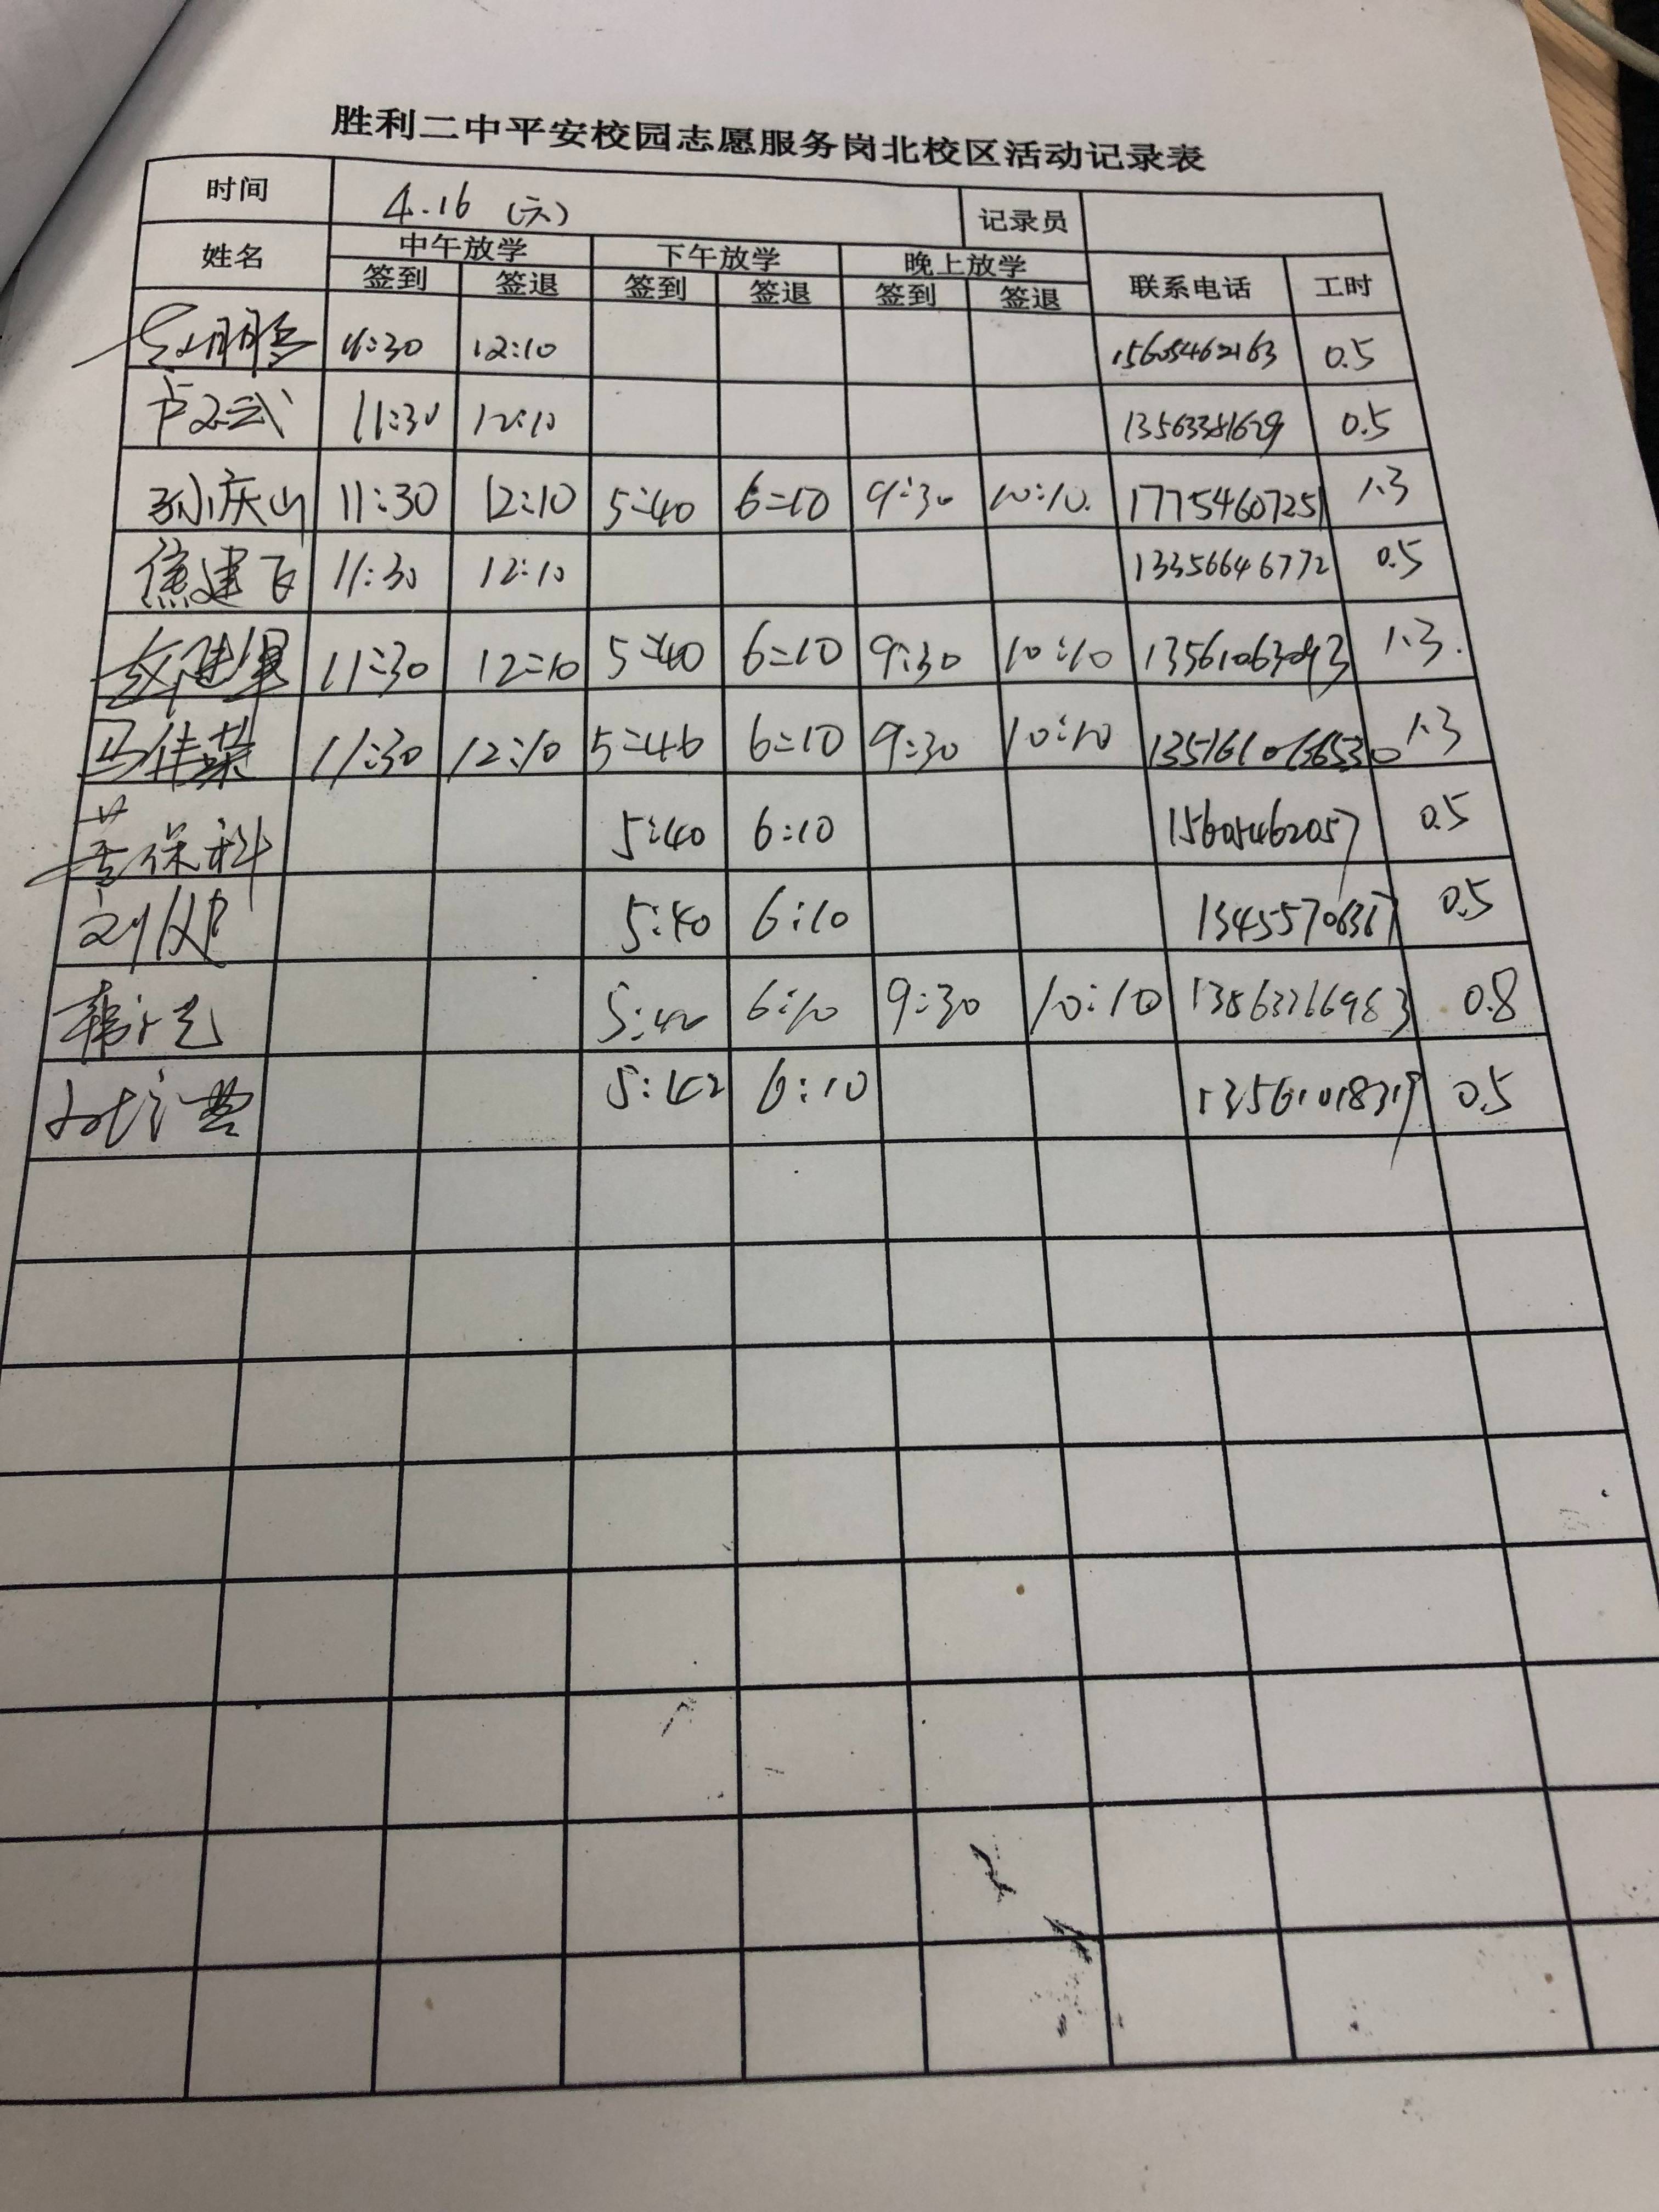 胜利二中平安校园志愿服务岗北校区活动记录表
时间 4.16 (六) 记录员
姓名 中午放学 下午放学 晚上放学 联系电话 工时
签到 签退 签到 签退 签到 签退
11:30 12:10 15605462163 0.5
卢文武 11:30 12:10 13563381629 0.5
孙庆山 11:30 12:10 5:40 6:10 9:30 10:10. 17754607251 1.3
焦建飞 11:30 12:10 13356646772 0.5
11:30 12:10 5:40 6:10 9:30 10:10 13561063093 1.3.
马佳荣 11:30 12:10 5:46 6:10 9:30 10:10 1.3
董保科 5:40 6:10 15605462057 0.5
刘健 5:40 6:10 13455706367 0.5
5:40 6:10 9:30 10:10 0.8
5:42 6:10 13561018319 0.5